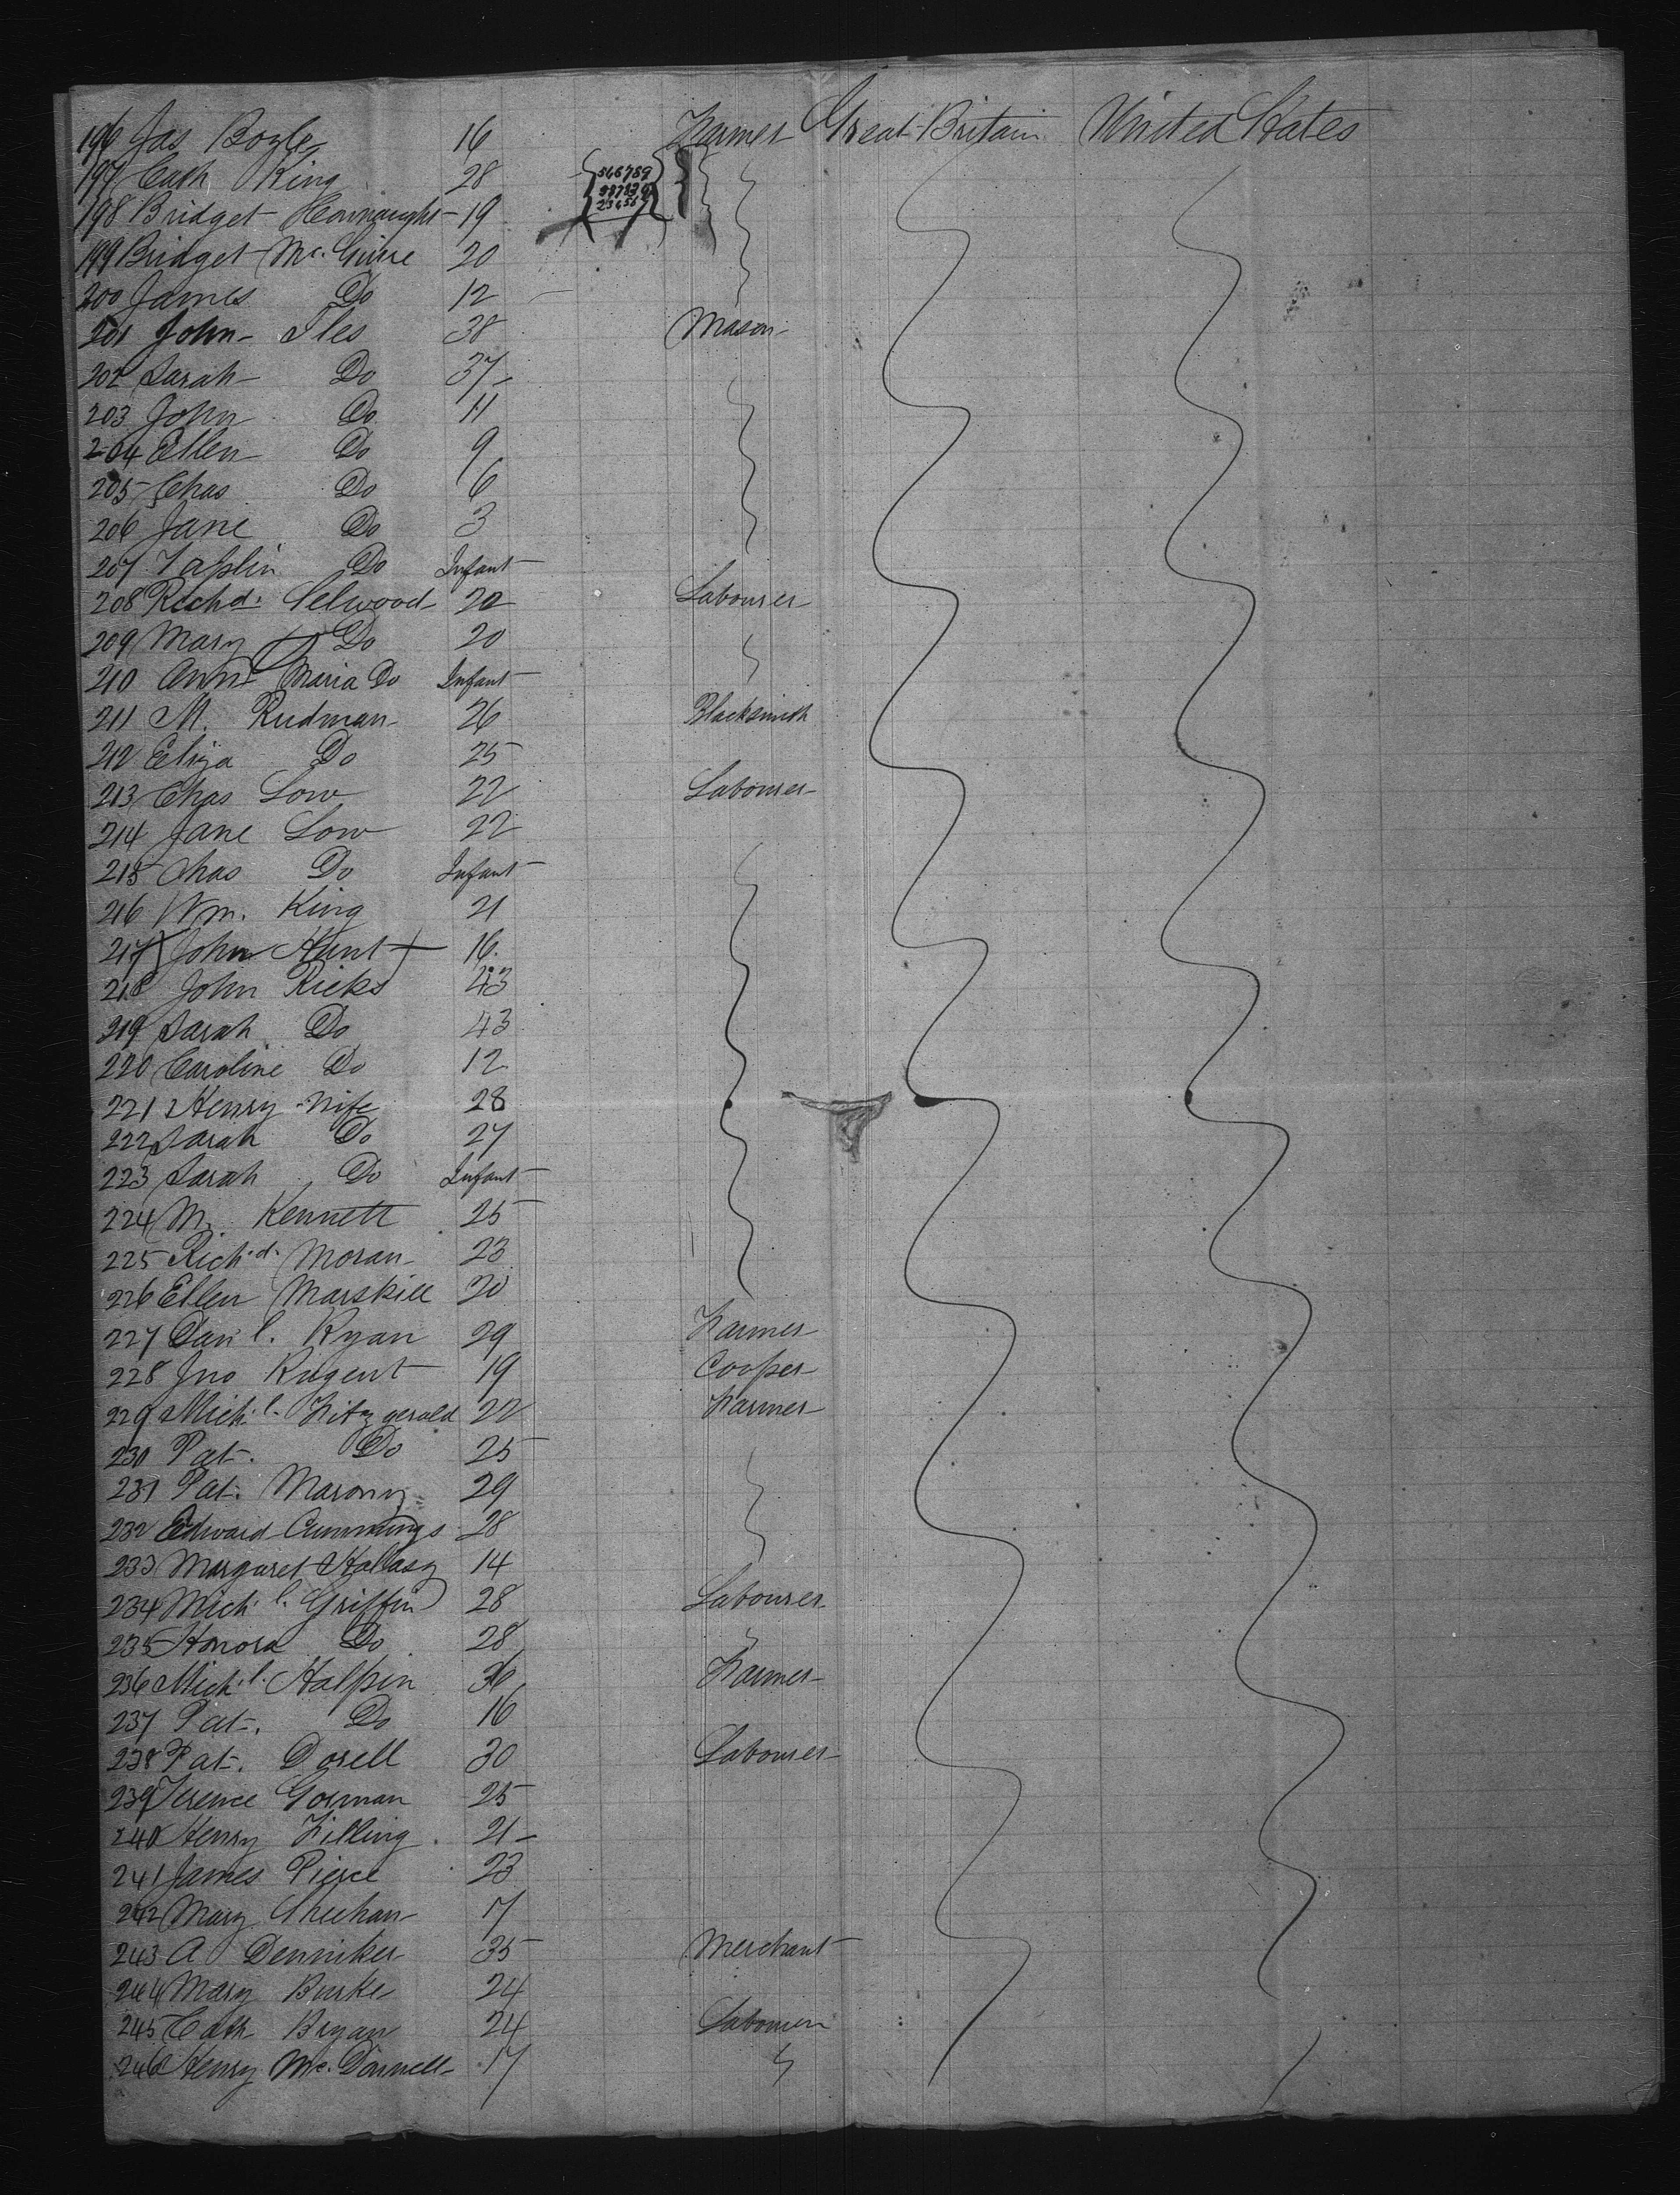 196 Jas Boyle 16 Farmer Great Britain United States
197 Cath King 28
198 Bridget Connaught 19
199 Bridget Mc. Guire 20
200 James Do 12
201 John Iles 38 Mason
202 Sarah Do 37
203 John Do 11
204 Ellen Do 9
205 Chas Do 6
206 Jane Do 3
207 Do Infant
208 Richd. Selwood 20 Labourer
209 Mary Do 20
210 Ann Maria Do Infant
211 M. Rudman 26 Blacksmith
212 Eliza Do 25
213 Chas Low 22 Labourer
214 Jane Low 22
215 Chas Do Infant
216 Wm. King 21
217 John Hunt 16
218 John Ricks 43
219 Sarah Do 43
220 Caroline Do 12
221 Henry 28
222 Sarah Do 27
223 Sarah Do Infant
224 M. Kennett 25
225 Rich.d. Moran 23
226 Ellen Marskill 20
227 Danl. Ryan 29 Farmer
228 Jno 19 Cooper
229 Mich.l. Fitzgerald 22 Farmer
230 Pat. Do 25
231 Pat. Marony 29
232 Edward Cummings 28
233 Margaret 14
234 Mich.l. Griffin 28 Labourer
235 Honora Do 28
236 Mich.l. Halpin 36 Farmer
237 Pat. Do 16
238 Pat. Dorell 30 Labourer
239 Terence Gorman 25
240 Henry Filling 21
241 James Pierce 23
242 Mary Sheehan 17
243 A Denniker 35 Merchant
244 Mary Burke 24
245 Cath Bryan 24 Labourer
246 Henry Mc. Donnell 17